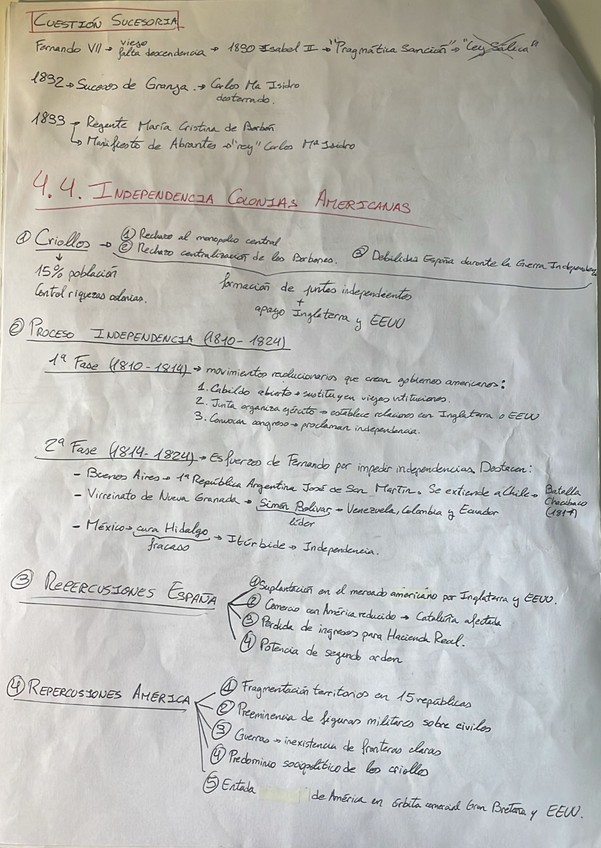 CUESTIÓN SUCESORIA
Fernando VII → viejo
falta descendencia → 1830 Isabel II → "Pragmática Sanción" → "Ley Sálica"
1832 → Sucesos de Granja → Carlos Mª Isidro
desterrado.
1833 → Regente María Cristina de Borbón
↳ Manifiesto de Abrantes → "rey" Carlos Mª Isidro
4.4. INDEPENDENCIA COLONIAS AMERICANAS
① Criollos → ① Rechazo al monopolio central
② Rechazo centralización de los Borbones. ③ Debilidad España durante la Guerra Independencia
↓
15% población
Control riquezas colonias.
formación de juntas independientes
+
apoyo Inglaterra y EEUU
② PROCESO INDEPENDENCIA (1810-1824)
1ª Fase (1810-1814) → movimientos revolucionarios que crean gobiernos americanos:
1. Cabildo abierto → sustituyen viejas intituciones.
2. Junta organiza ejército → establece relaciones con Inglaterra o EEUU
3. Convocan congreso → proclaman independencia.
2ª Fase (1814-1824) → Esfuerzos de Fernando por impedir independencias. Destacan:
- Buenos Aires → 1ª República Argentina José de San Martín. Se extiende a Chile → Batalla
Chacabuco
(1817)
- Virreinato de Nueva Granada → Simón Bolívar → Venezuela, Colombia y Ecuador
líder
- México → cura Hidalgo → Itúrbide → Independencia.
fracaso
③ REPERCUSIONES ESPAÑA
① Suplantación en el mercado americano por Inglaterra y EEUU.
② Comercio con América reducido → Cataluña afectada
③ Pérdida de ingresos para Hacienda Real.
④ Potencia de segundo orden
④ REPERCUSIONES AMÉRICA
① Fragmentación territorios en 15 repúblicas
② Preeminencia de figuras militares sobre civiles
③ Guerras → inexistencia de fronteras claras
④ Predominio sociopolítico de los criollos
⑤ Entada de América en órbita comercial Gran Bretaña y EEUU.